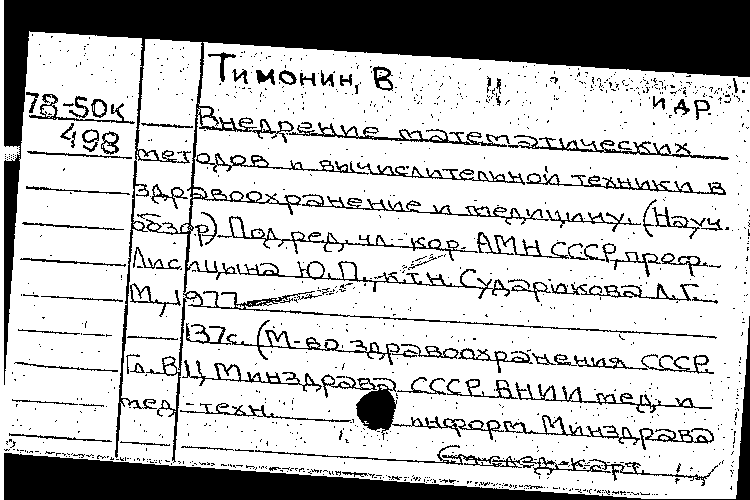 Тимонин, В
и др.
78-50к
498
Внедрение математических
методов и вычислительной техники в
здравоохранение и медицину. (Науч.
обзор) Под ред. чл.-кор. АМН СССР, проф.
Лисицына Ю.П., к.т.н. Сударикова Л.Г.
М., 1977
137с. (М-во здравоохранения СССР.
Гл. ВЦ Минздрава СССР. ВНИИ мед. и
мед.-техн. информ. Минздрава
См след. карт.